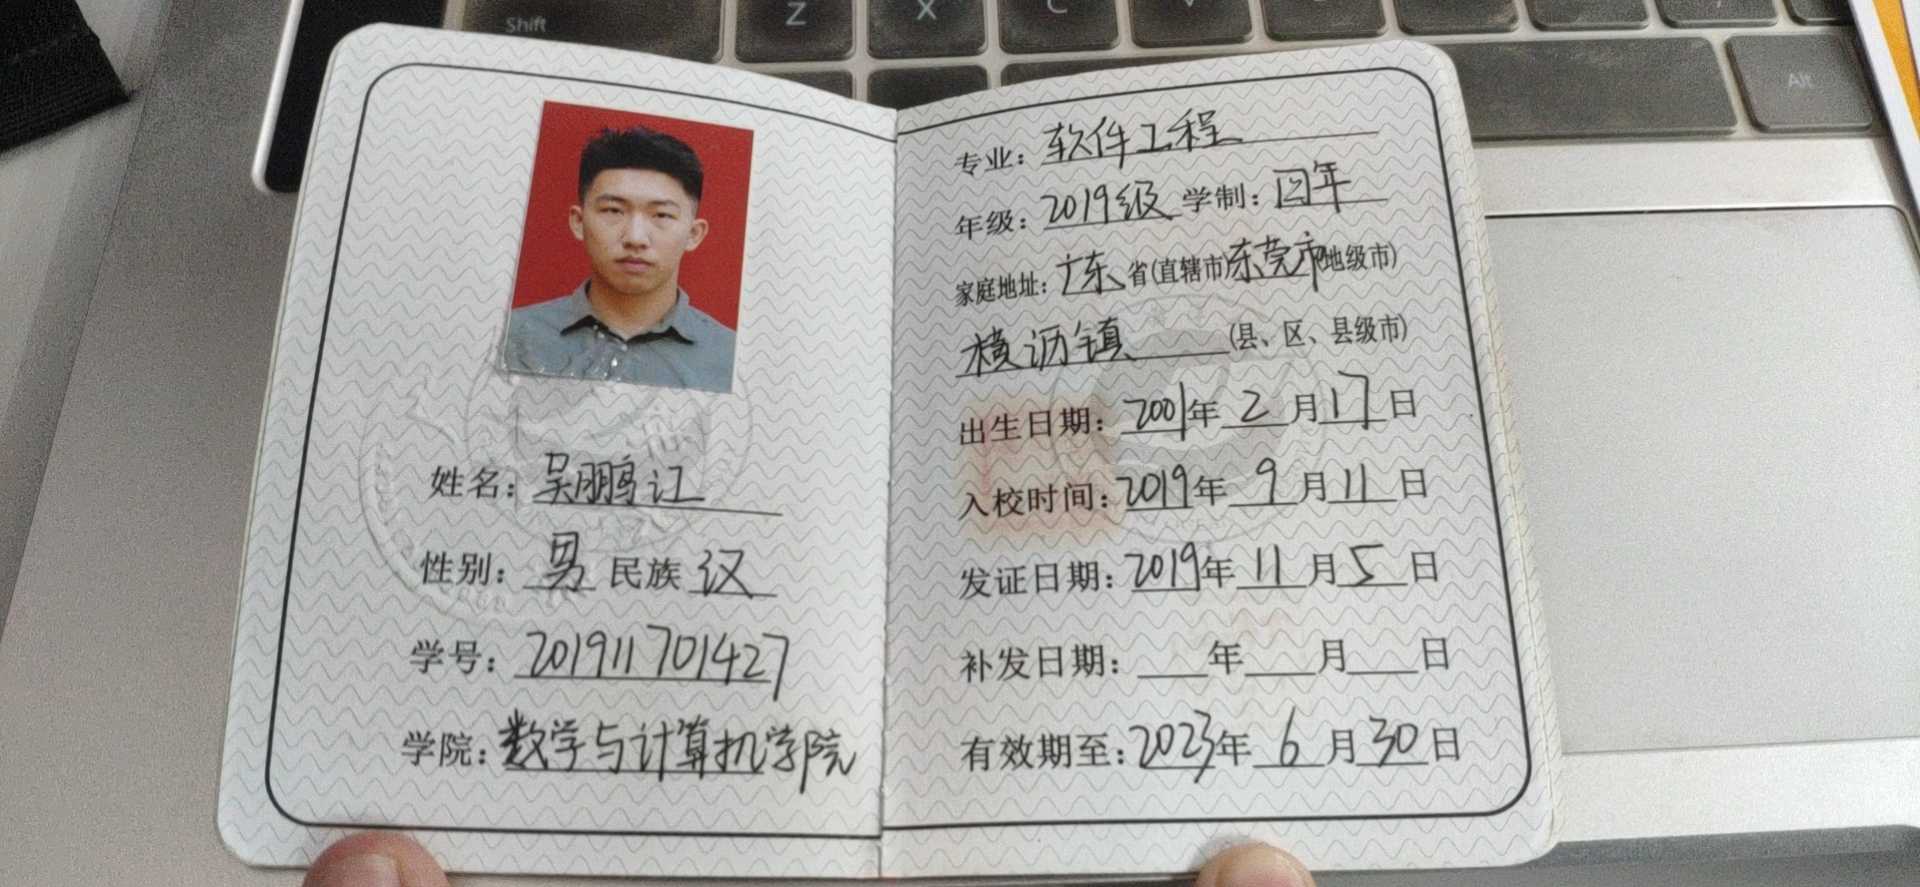 Shift
Z
X
C
V
Alt
姓名：吴鹏江
性别：男 民族 汉
学号：201911701427
学院：数学与计算机学院
专业：软件工程
年级：2019级 学制：四年
家庭地址：广东省(直辖市)东莞市(地级市)
横沥镇(县、区、县级市)
出生日期：2001年2月17日
入校时间：2019年9月11日
发证日期：2019年11月5日
补发日期：年月日
有效期至：2023年6月30日